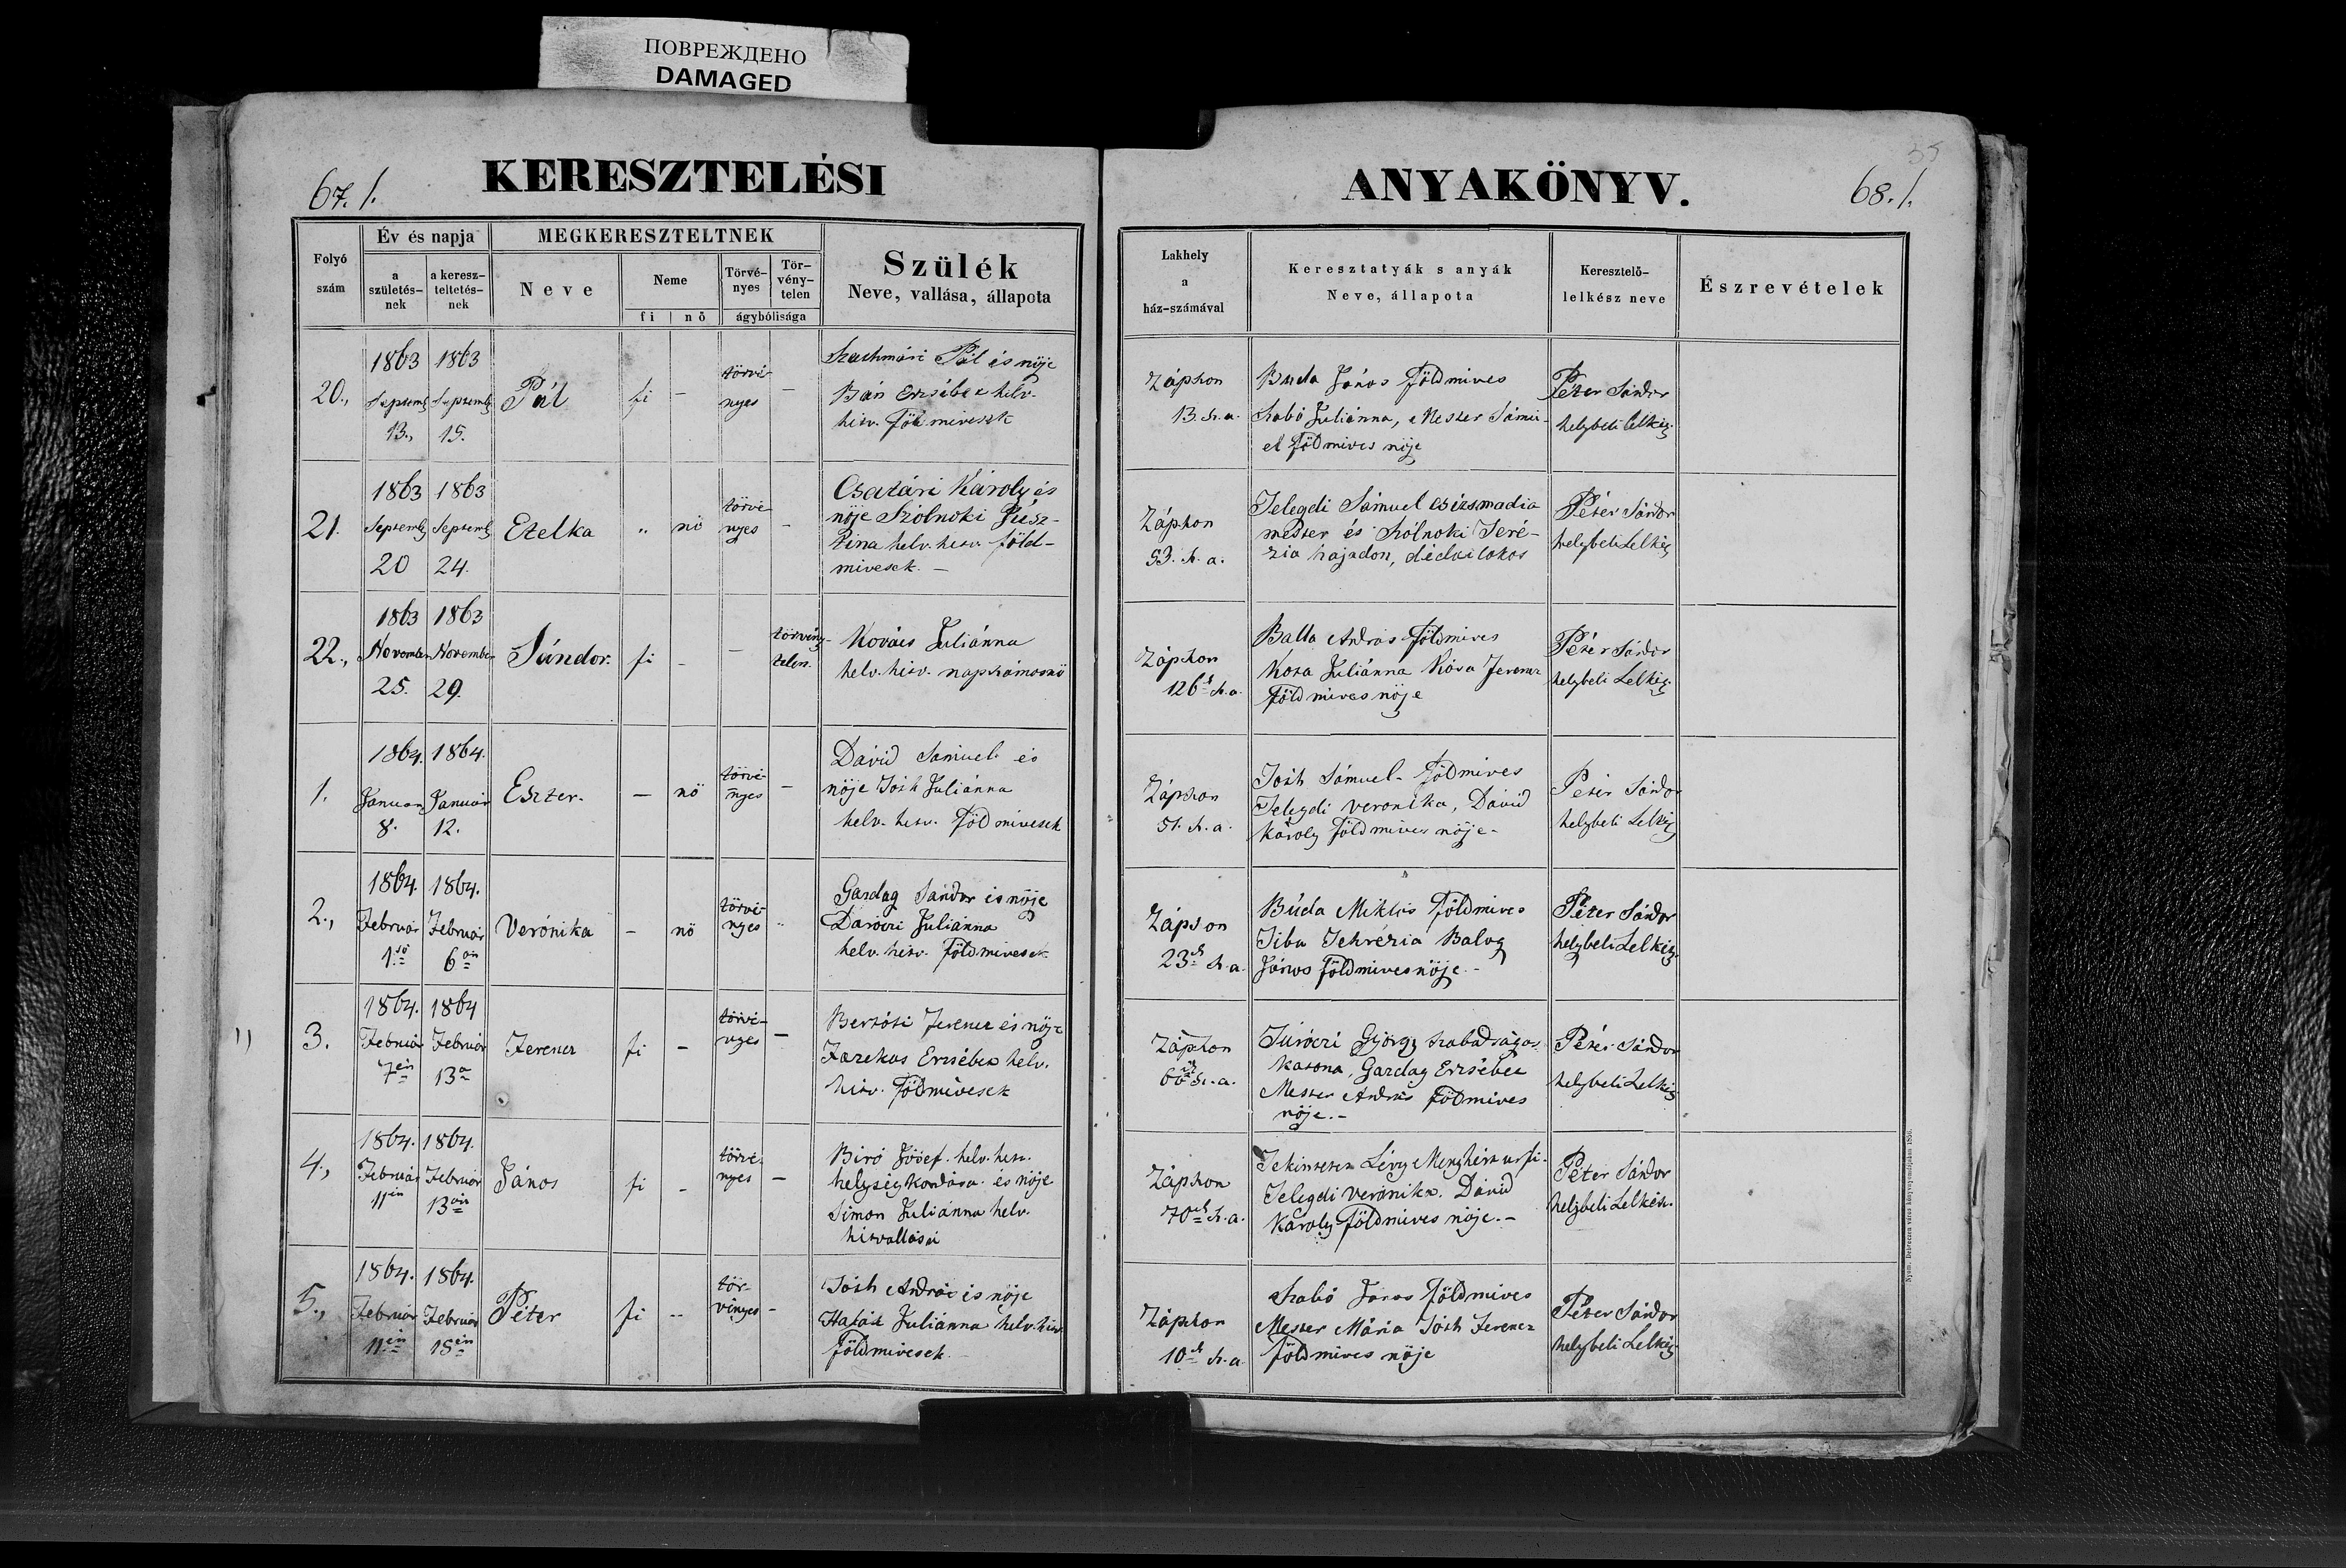 ПОВРЕЖДЕНО
DAMAGED
67. l.
KERESZTELÉSI
Folyó szám
Év és napja
a születés-nek
a keresz-teltetés-nek
MEGKERESZTELTNEK
Neve
Neme
fi
nő
Törvé-nyes
Tör-vény-telen
ágybólisága
Szülék
Neve, vallása, állapota
55
68. l.
ANYAKÖNYV.
Lakhely
a
ház-számával
Keresztatyák s anyák
Neve, állapota
Keresztelő-
lelkész neve
Észrevételek
20.,
1863 Septemb 13.,
1863 Septemb 15.
Pál
fi
–
törvé-
nyes
–
Szathmári Pál és nője
Bán Erzsébet helv.
hitv. földmivesek
Záphon
13. h. a.
Buda János földmives
Szabó Juliánna, Mester Sámu-
el földmives nője
Péter Sándor
helybeli lelkész
21.
1863 Septemb 20
1863 Septemb 24.
Etelka
„
nö
törvé-
nyes
–
Csatári Károly és
nője Szólnoki Jusz-
tina helv. hitv. föld-
mivesek. –
Záphon
53. h. a.
Telegdi Sámuel csizsmadia
mester és Szólnoki Teré-
zia hajadon,
Péter Sándor
helybeli Lelkész
22.,
1863 November 25.
1863 November 29.
Sándor.
fi
–
–
törvény-
telen.
Kovács Juliánna
helv. hitv. napszámosnö
Záphon
126ik h. a.
Balla András földmives
Kosa Juliánna Kósa Ferencz
földmives nője
Péter Sándor
helybeli Lelkész
1.
1864. Januar 8.
1864. Januar 12.
Eszter.
–
nö
törvé-
nyes
–
Dávid Sámuel és
nője Tóth Juliánna
helv. hitv. földmivesek
Záphon
51. h. a.
Tóth Sámuel földmives
Telegdi Veronika, Dávid
Károly földmives nője –
Péter Sándor
helybeli Lelkész
2.,
1864. Február 1ső
1864. Február 6án
Verónika
–
nö
törvé-
nyes
„
Gazdag Sándor és nője
Daróczi Juliánna
helv. hitv. földmivesek
Záphon
23ik h. a.
Búda Miklós földmives
Tiba Tehrézia Balog
János földmives nője. –
Péter Sándor
helybeli Lelkész
11
3.
1864. Február 7én
1864 Február 13a
Ferencz
fi
–
törvé-
nyes
–
Bertóti Ferencz és nője
Fazekas Erzsébet helv.
hitv. földmivesek
Záphon
66ik h. a.
Túróczi György szabadságos
katona, Gazdag Erzsébet
Mester András földmives
nője. –
Péter Sándor
helybeli Lelkész
4.,
1864. Február 11én
1864. Február 13án
János
fi
–
törvé-
nyes
–
Biró József. helv. hitv.
helység kondása. és nője
Simon Juliánna helv.
hitvallásu
Záphon
70ik h. a.
Tekintetes Lévy Menyhért urfi.
Telegdi Veronika. Dávid
Károly földmives nője. –
Péter Sándor
helybeli Lelkész.
5.,
1864. Február 11én
1864. Február 15én
Péter
fi
--
tör-
vényes
–
Tóth András és nője
Juliánna helv. hitv.
földmivesek.
Záphon
10ik h. a.
Szabó János földmives
Mester Mária Tóth Ferencz
földmives nője
Péter Sándor
helybeli Lelkész
Nyom. Debreczen város könyvnyomdájában 1856.